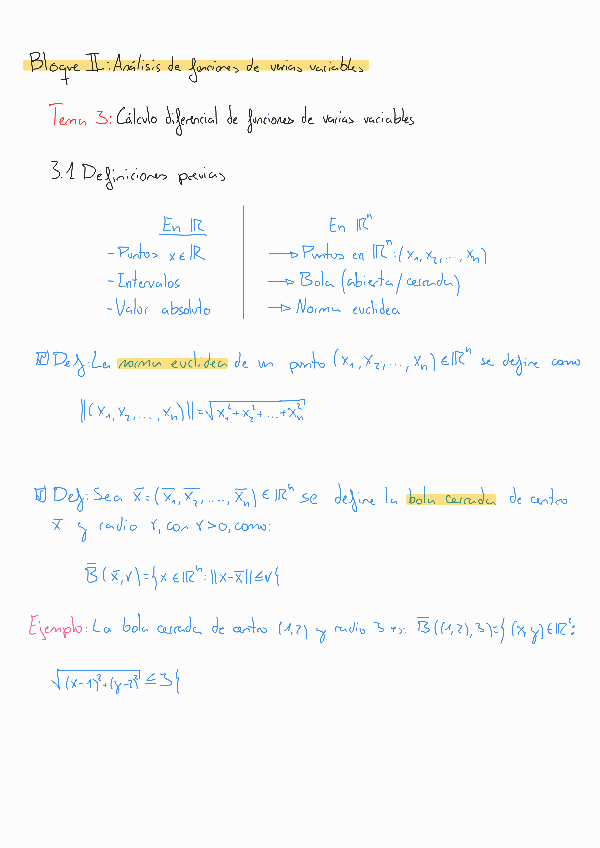 Bloque II: Análisis de funciones de varias variables
Tema 3: Cálculo diferencial de funciones de varias variables
3.1 Definiciones previas
En ℝ
En ℝⁿ
- Puntos x∈ℝ → Puntos en ℝⁿ: (x₁, x₂, ..., xₙ)
- Intervalos → Bola (abierta/cerrada)
- Valor absoluto → Norma euclídea
Def: La norma euclídea de un punto (x₁, x₂, ..., xₙ) ∈ ℝⁿ se define como
||(x₁, x₂, ..., xₙ)|| = √(x₁² + x₂² + ... + xₙ²)
Def: Sea x̄ = (x̄₁, x̄₂, ...., x̄ₙ) ∈ ℝⁿ se define la bola cerrada de centro
x̄ y radio r, con r>0, como:
B̄(x̄, r) = {x ∈ ℝⁿ: ||x-x̄|| ≤ r}
Ejemplo: La bola cerrada de centro (1,2) y radio 3 es: B̄((1,2),3) = {(x,y) ∈ ℝ²:
√((x-1)² + (y-2)²) ≤ 3}